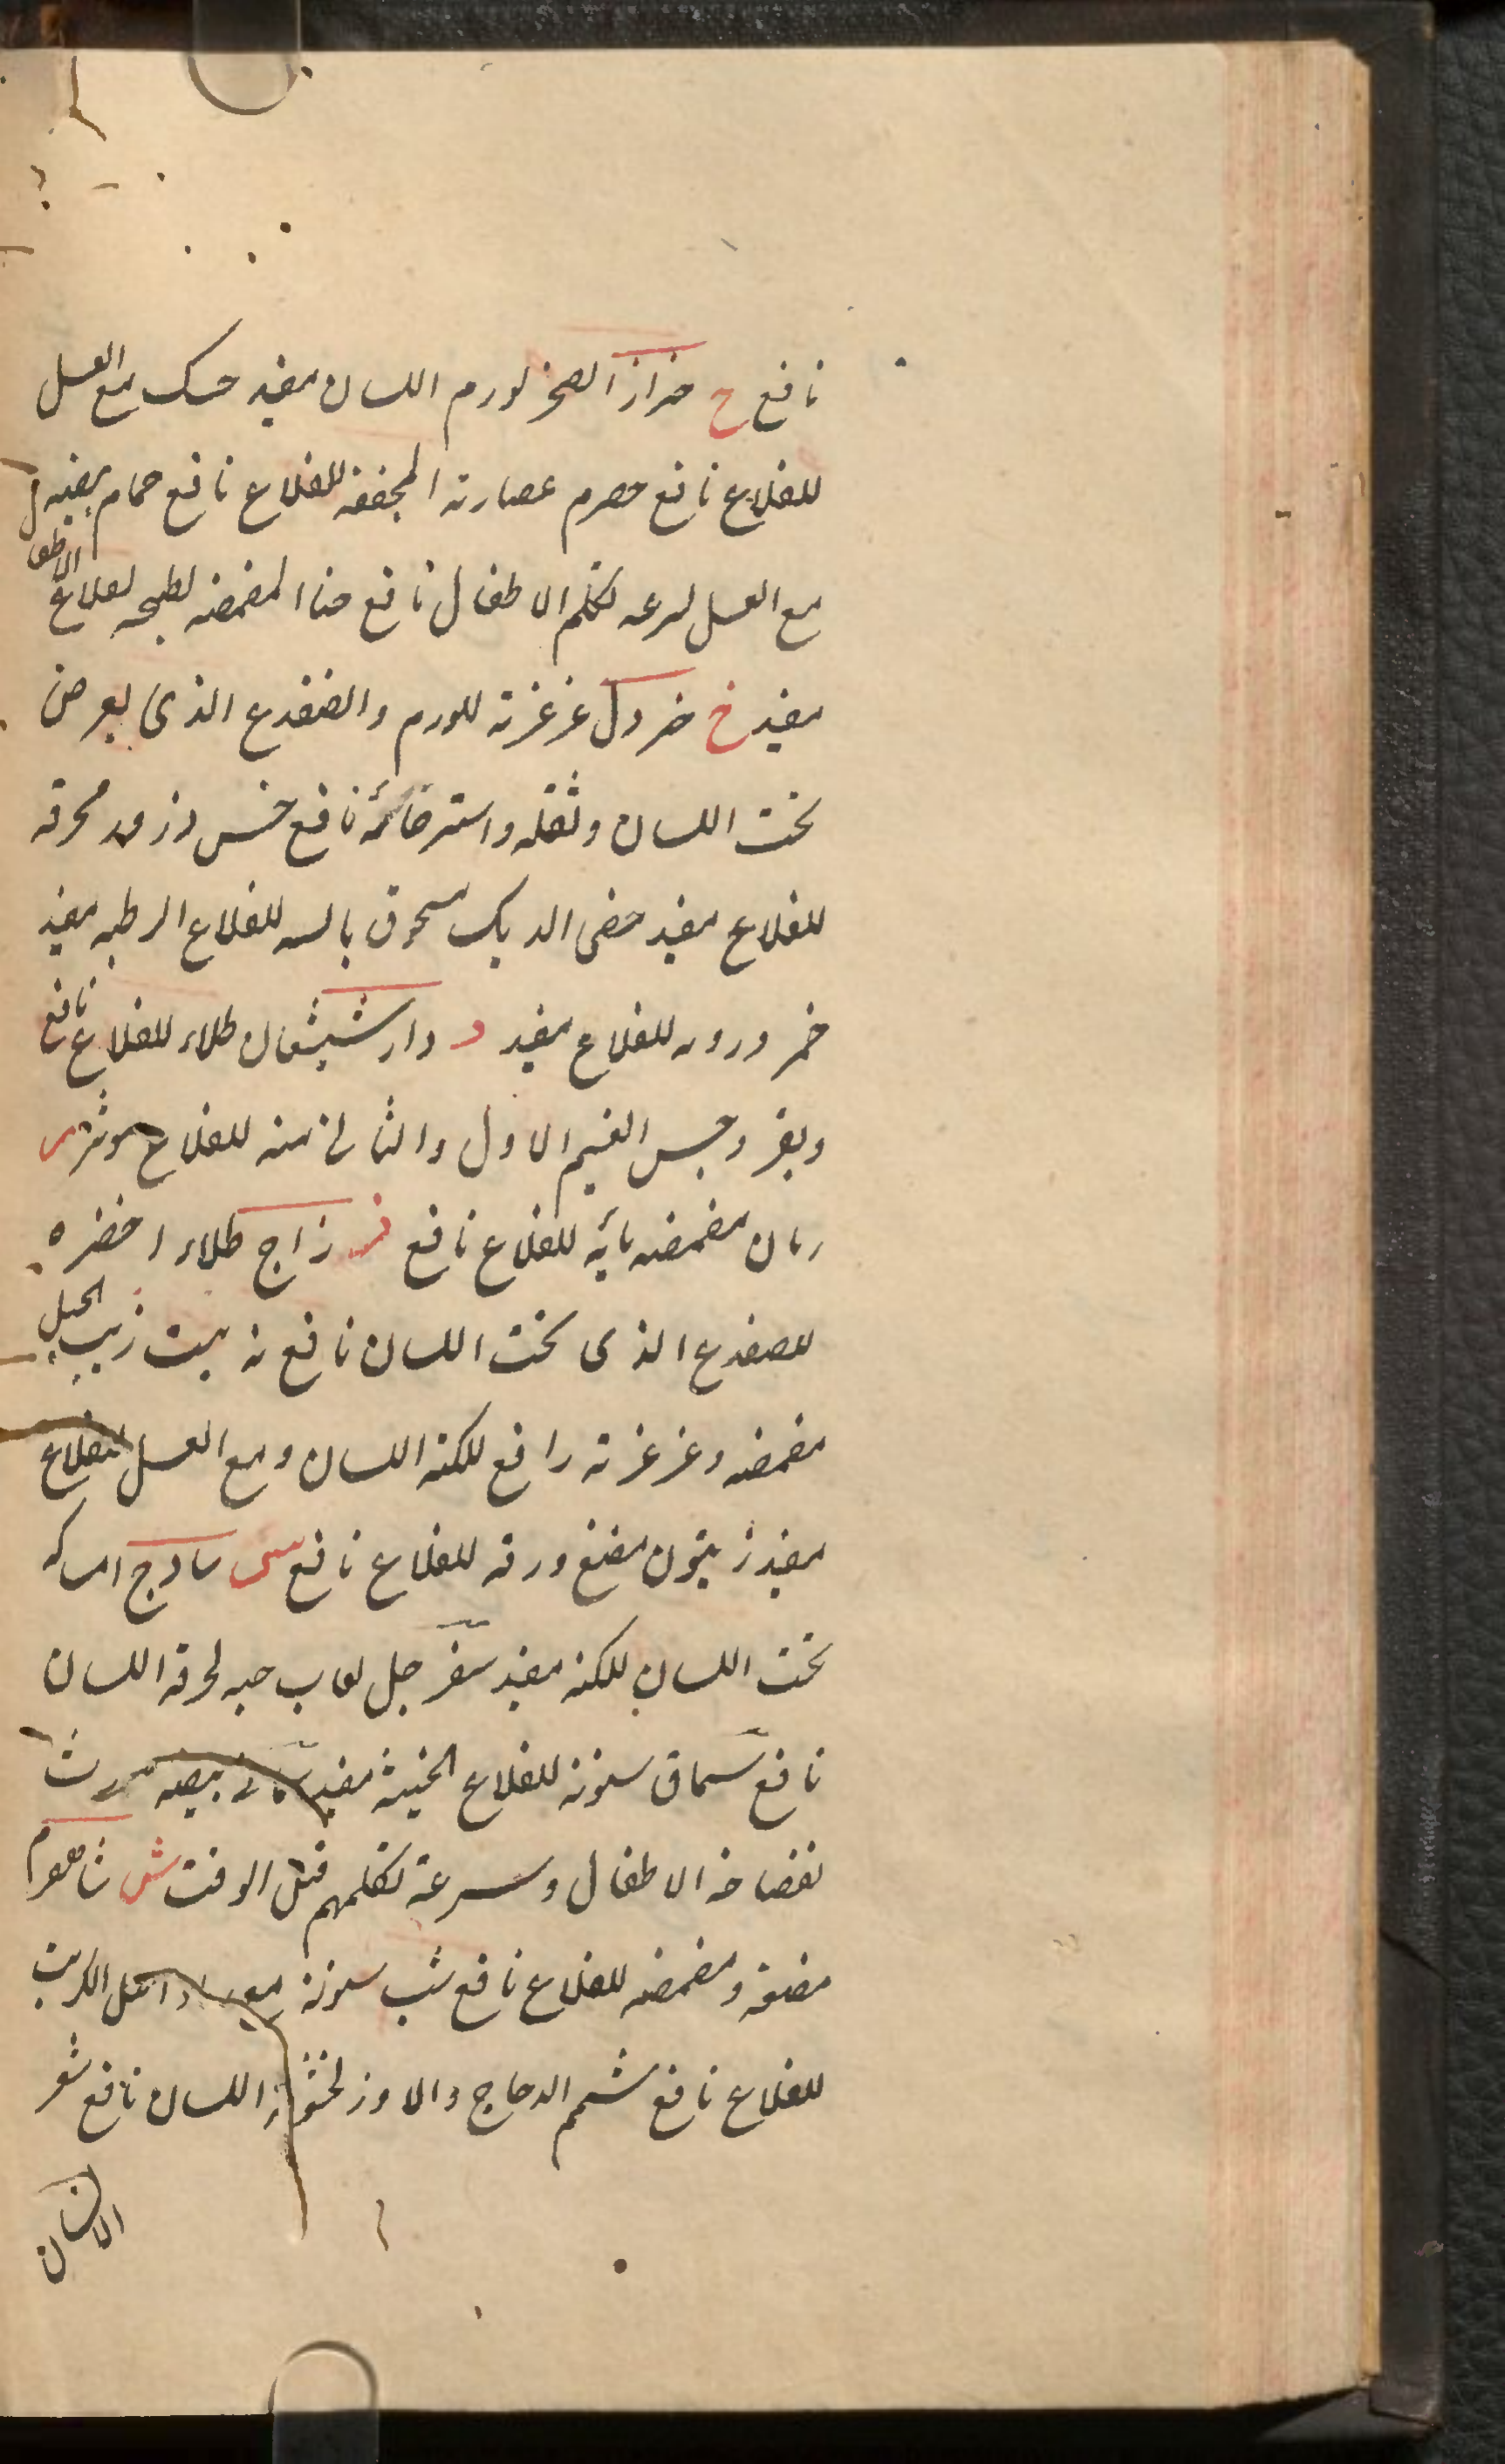 نافع ح حزاز الصخر لورم اللسان مفيد حسك مع العسل
للقلاع نافع حصرم عصارته المجففه للقلاع نافع حمام بيضه
مع العسل لسرعه تكلم الاطفال نافع حنا المضمضه لطبخه لقلاع الاطفا
مفيد خ خردل غرغرته للورم والضفدع الذى يعرض
تحت اللسان وثقله واسترخائه نافع خس بزره محرقه
للقلاع مفيد خصى الديك مسحوق يابسه للقلاع الرطبه مفيد
خمر وروده للقلاع مفيد د دارشيشعان طلاء للقلاع نافع
وبقر وجبس القسم الاول والثانى منه للقلاع موثر ر
رمان مضمضه مائه للقلاع نافع ز زاج طلاء اخضره
للضفدع الذى تحت اللسان نافع زبيب الجبل
مضمضه وغرغرته رافع للكنة اللسان ومع العسل للقلاع
مفيد زيتون مضغ ورقه للقلاع نافع س سادج امساكه
تحت اللسان للكنه مفيد سفرجل لعاب حبه لحرقه اللسان
نافع سماق سنونه للقلاع الخبيثة مفيد بيضه مورث
لفصاحه الاطفال وسرعة تكلمهم قبل الوقت ش شاهسفرم
مضغه ومضمضه للقلاع نافع شب سنونه الكرنب
للقلاع نافع شحم الدجاج والاوز لخشونة اللسان نافع شعر
الانسان